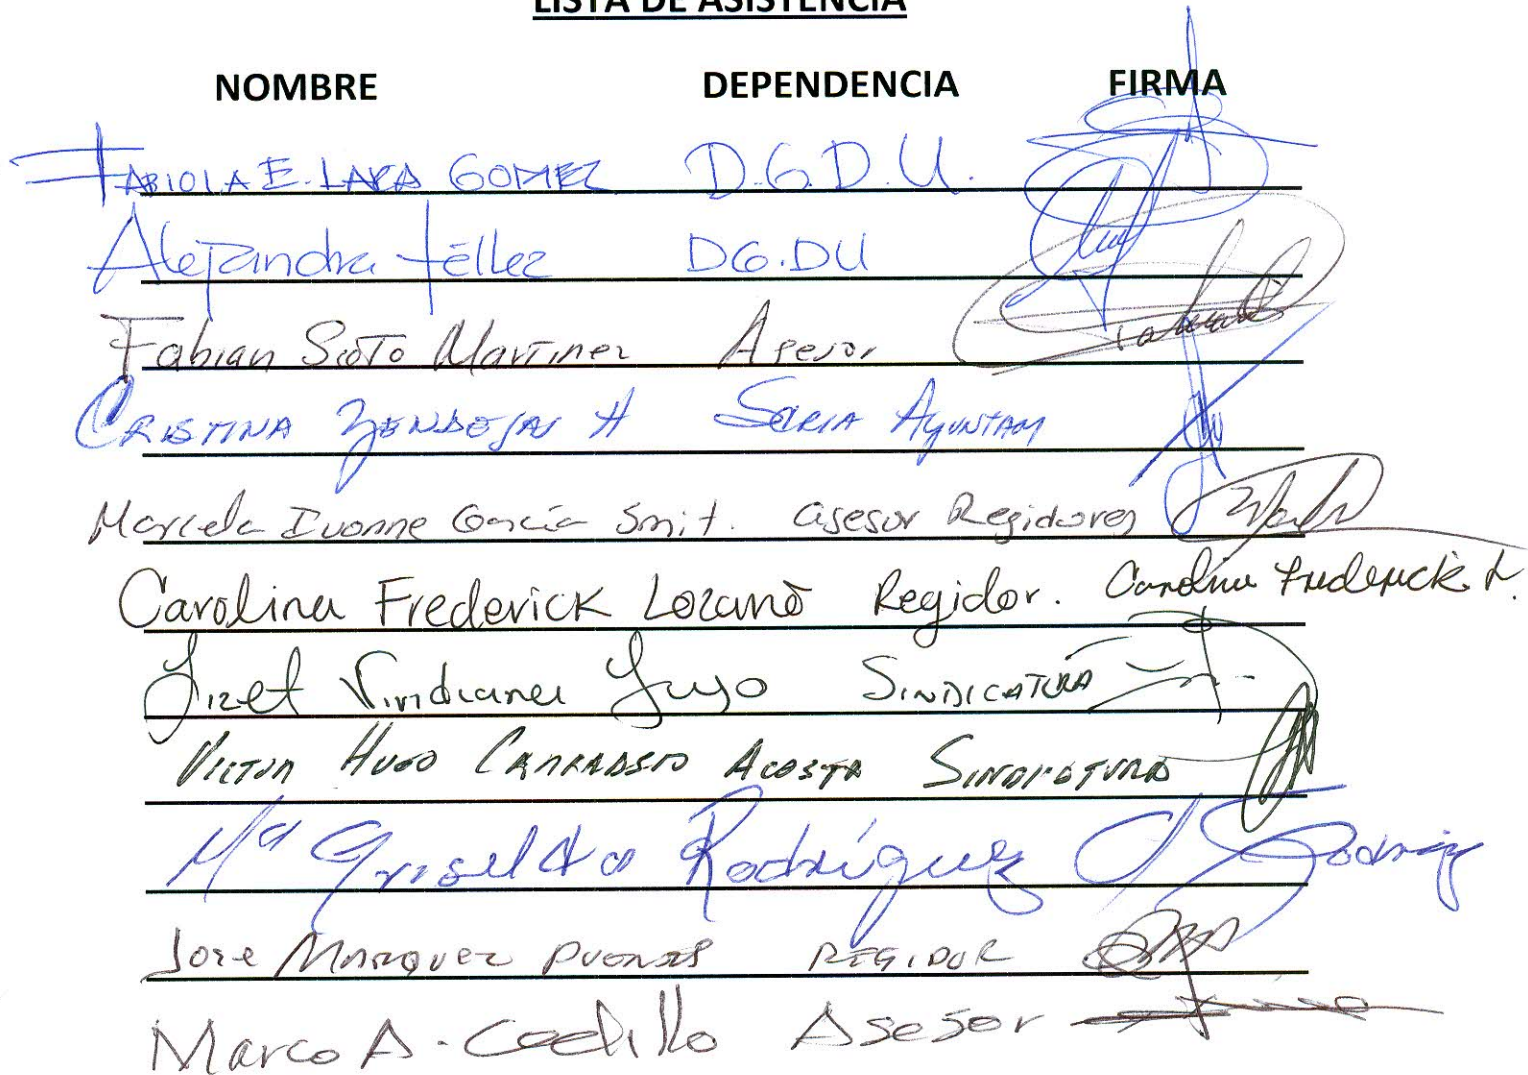 LISTA DE ASISTENCIA
NOMBRE DEPENDENCIA FIRMA
FABIOLA E. LARA GOMEZ D.G.D.U.
Alejandra Téllez DG.DU
Fabian Soto Martinez Asesor
CRISTINA ZENDEJAS H SCRIA AYUNTAM
Marcela Ivonne García Smit. asesor Regidores
Carolina Frederick Lozano Regidor. Carolina Frederick L.
Lizet Viridiana Lugo SINDICATURA
VICTOR HUGO CARRASCO ACOSTA SINDICATURA
Mª Griselda Rodríguez
Jose MARQUEZ PUENTES REGIDOR
Marco A. Cedillo Asesor